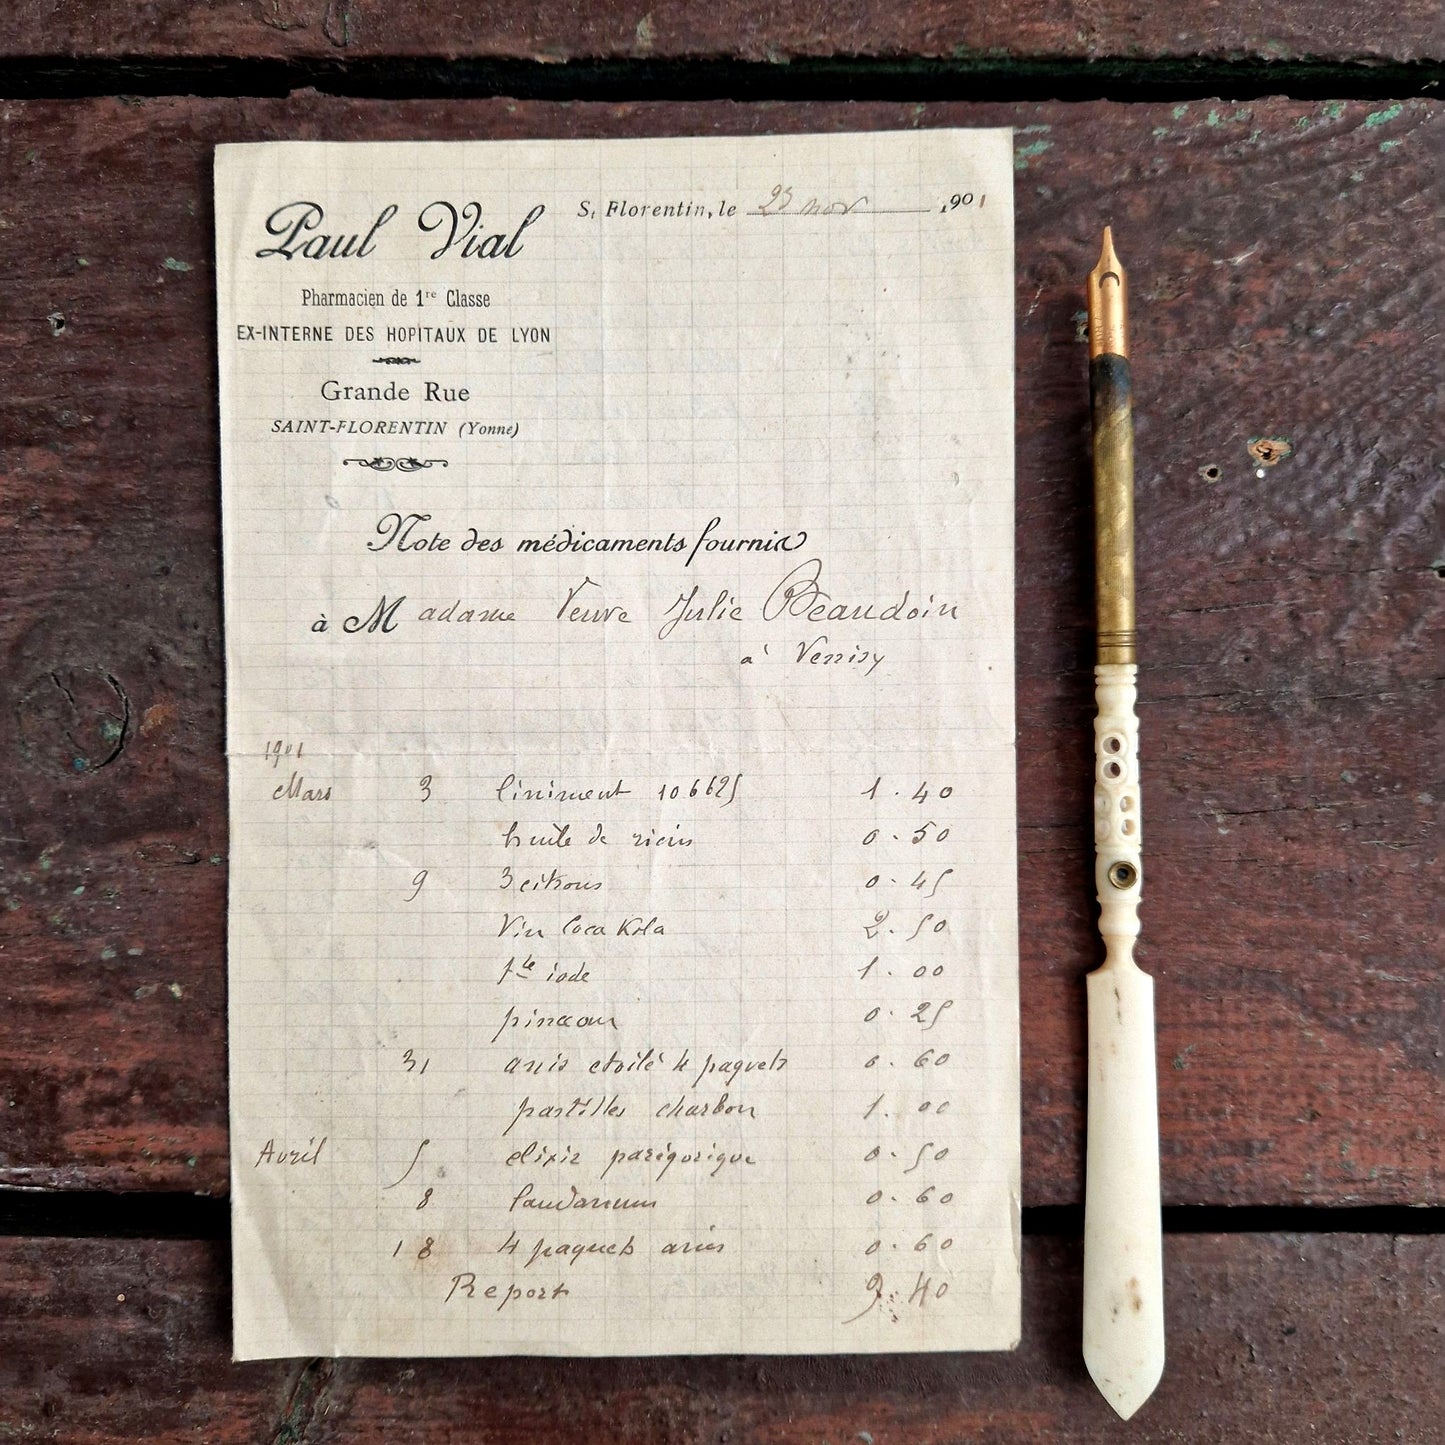 Paul Vial
St Florentin, le 23 nov 1901
Pharmacien de 1re Classe
EX-INTERNE DES HOPITAUX DE LYON
Grande Rue
SAINT-FLORENTIN (Yonne)
Note des médicaments fournis
à Madame Veuve Julie Beaudoin
à Venisy
1901
Mars 3 liniment 106625 1.40
huile de ricin 0.50
9 3 citrons 0.45
Vin Coca Kola 2.50
tre iode 1.00
pinceau 0.25
31 anis etoilé 4 paquets 0.60
pastilles charbon 1.00
Avril 5 elixir parégorique 0.50
8 laudanum 0.60
18 4 paquets anis 0.60
Report 9.40